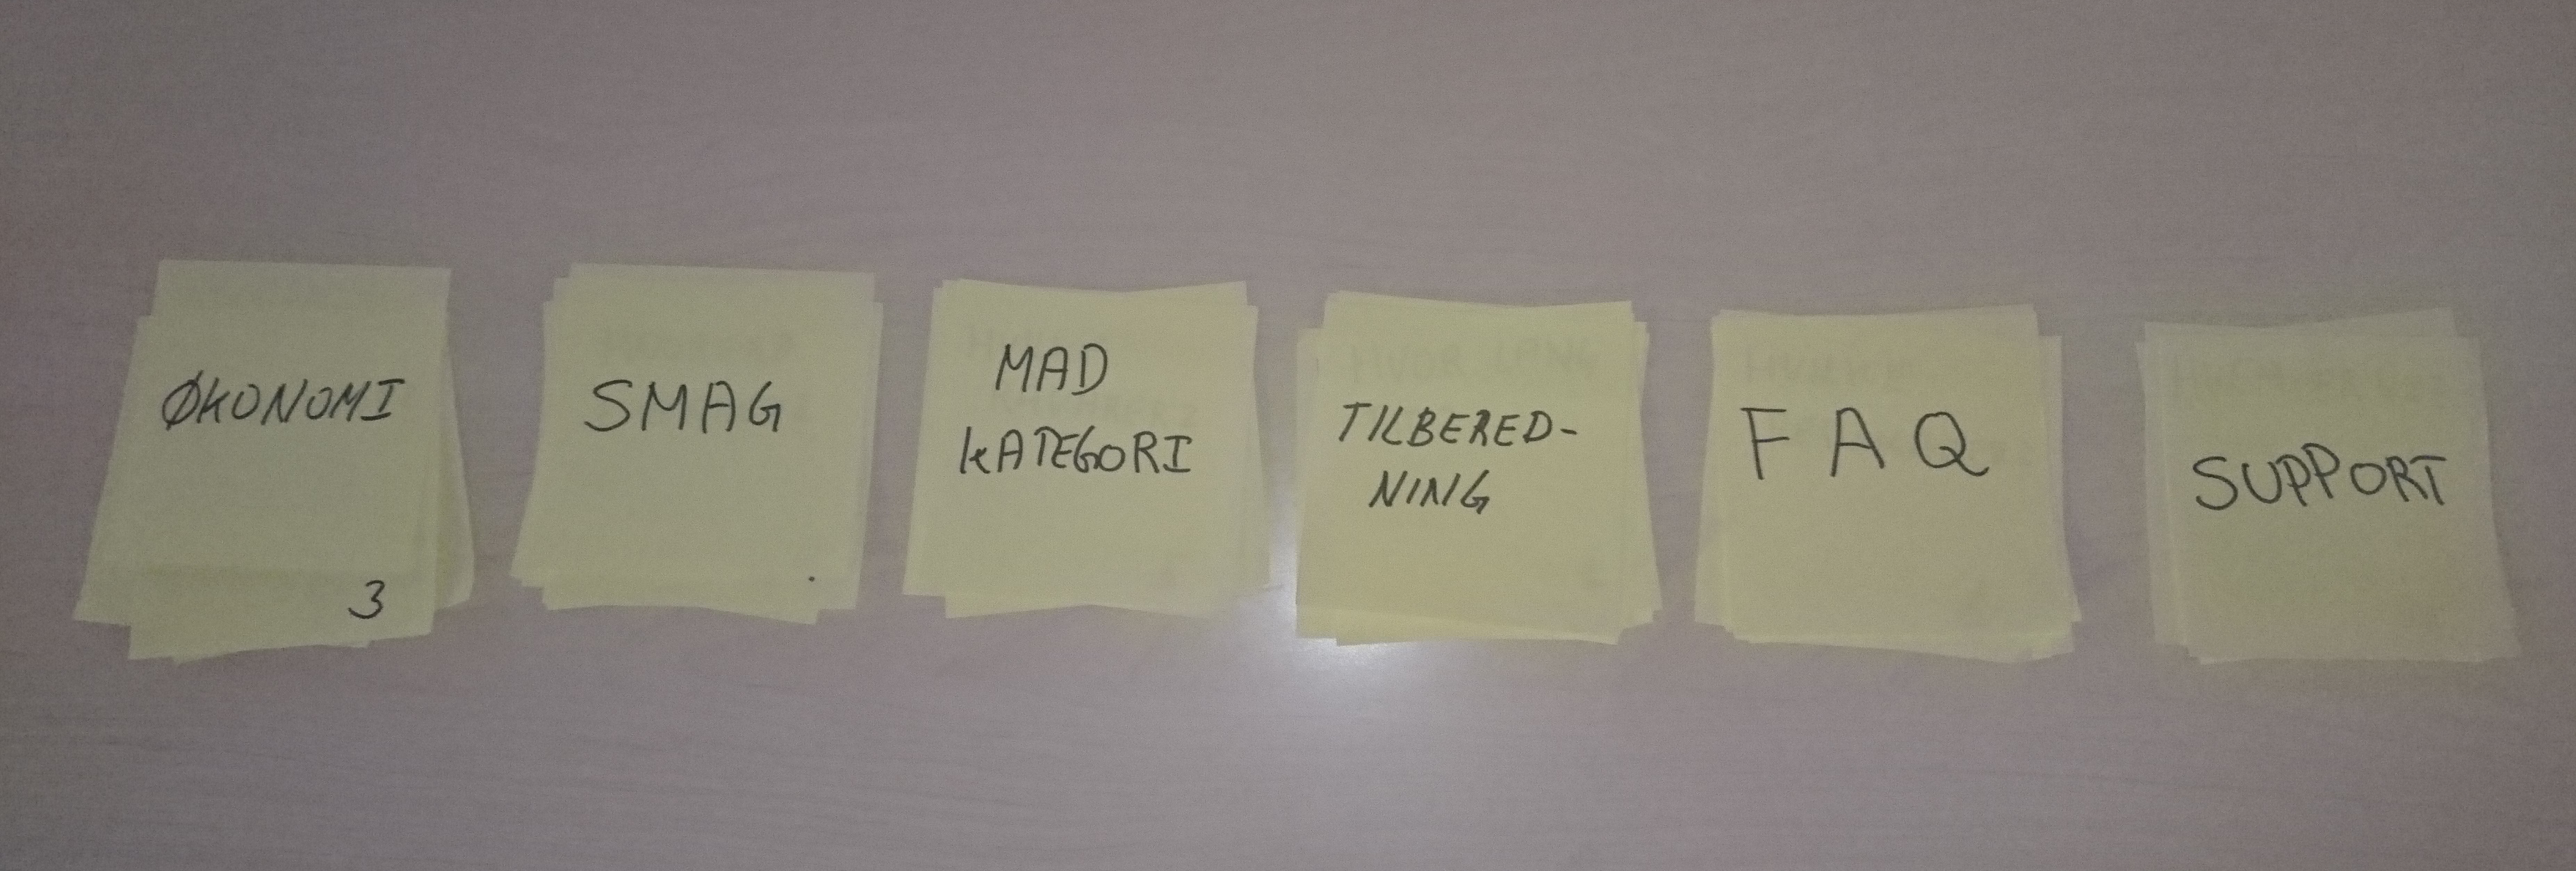 ØKONOMI
3
SMAG
MAD
KATEGORI
TILBERED-
NING
FAQ
SUPPORT